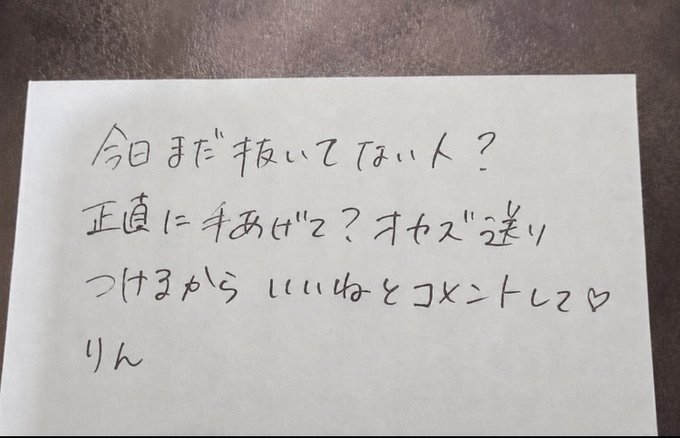 今日まだ抜いてない人?
正直に手あげて?オカズ送り
つけるから いいねとコメントして♡
りん